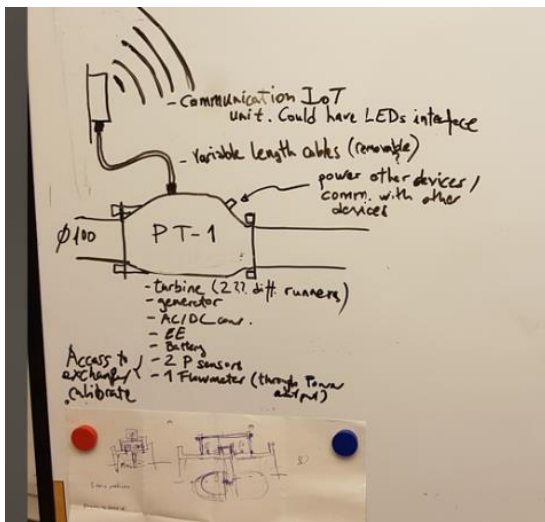 - Communication IoT
unit. Could have LEDs interface
- Variable length cables (removable?)
power other devices /
comm. with other
devices
Ø100
PT-1
- turbine (2?? diff. runners)
- generator
- AC/DC conv.
- EE
- Battery
- 2 P sensors
- 1 Flowmeter (through Power
output)
Access to
exchange/
calibrate